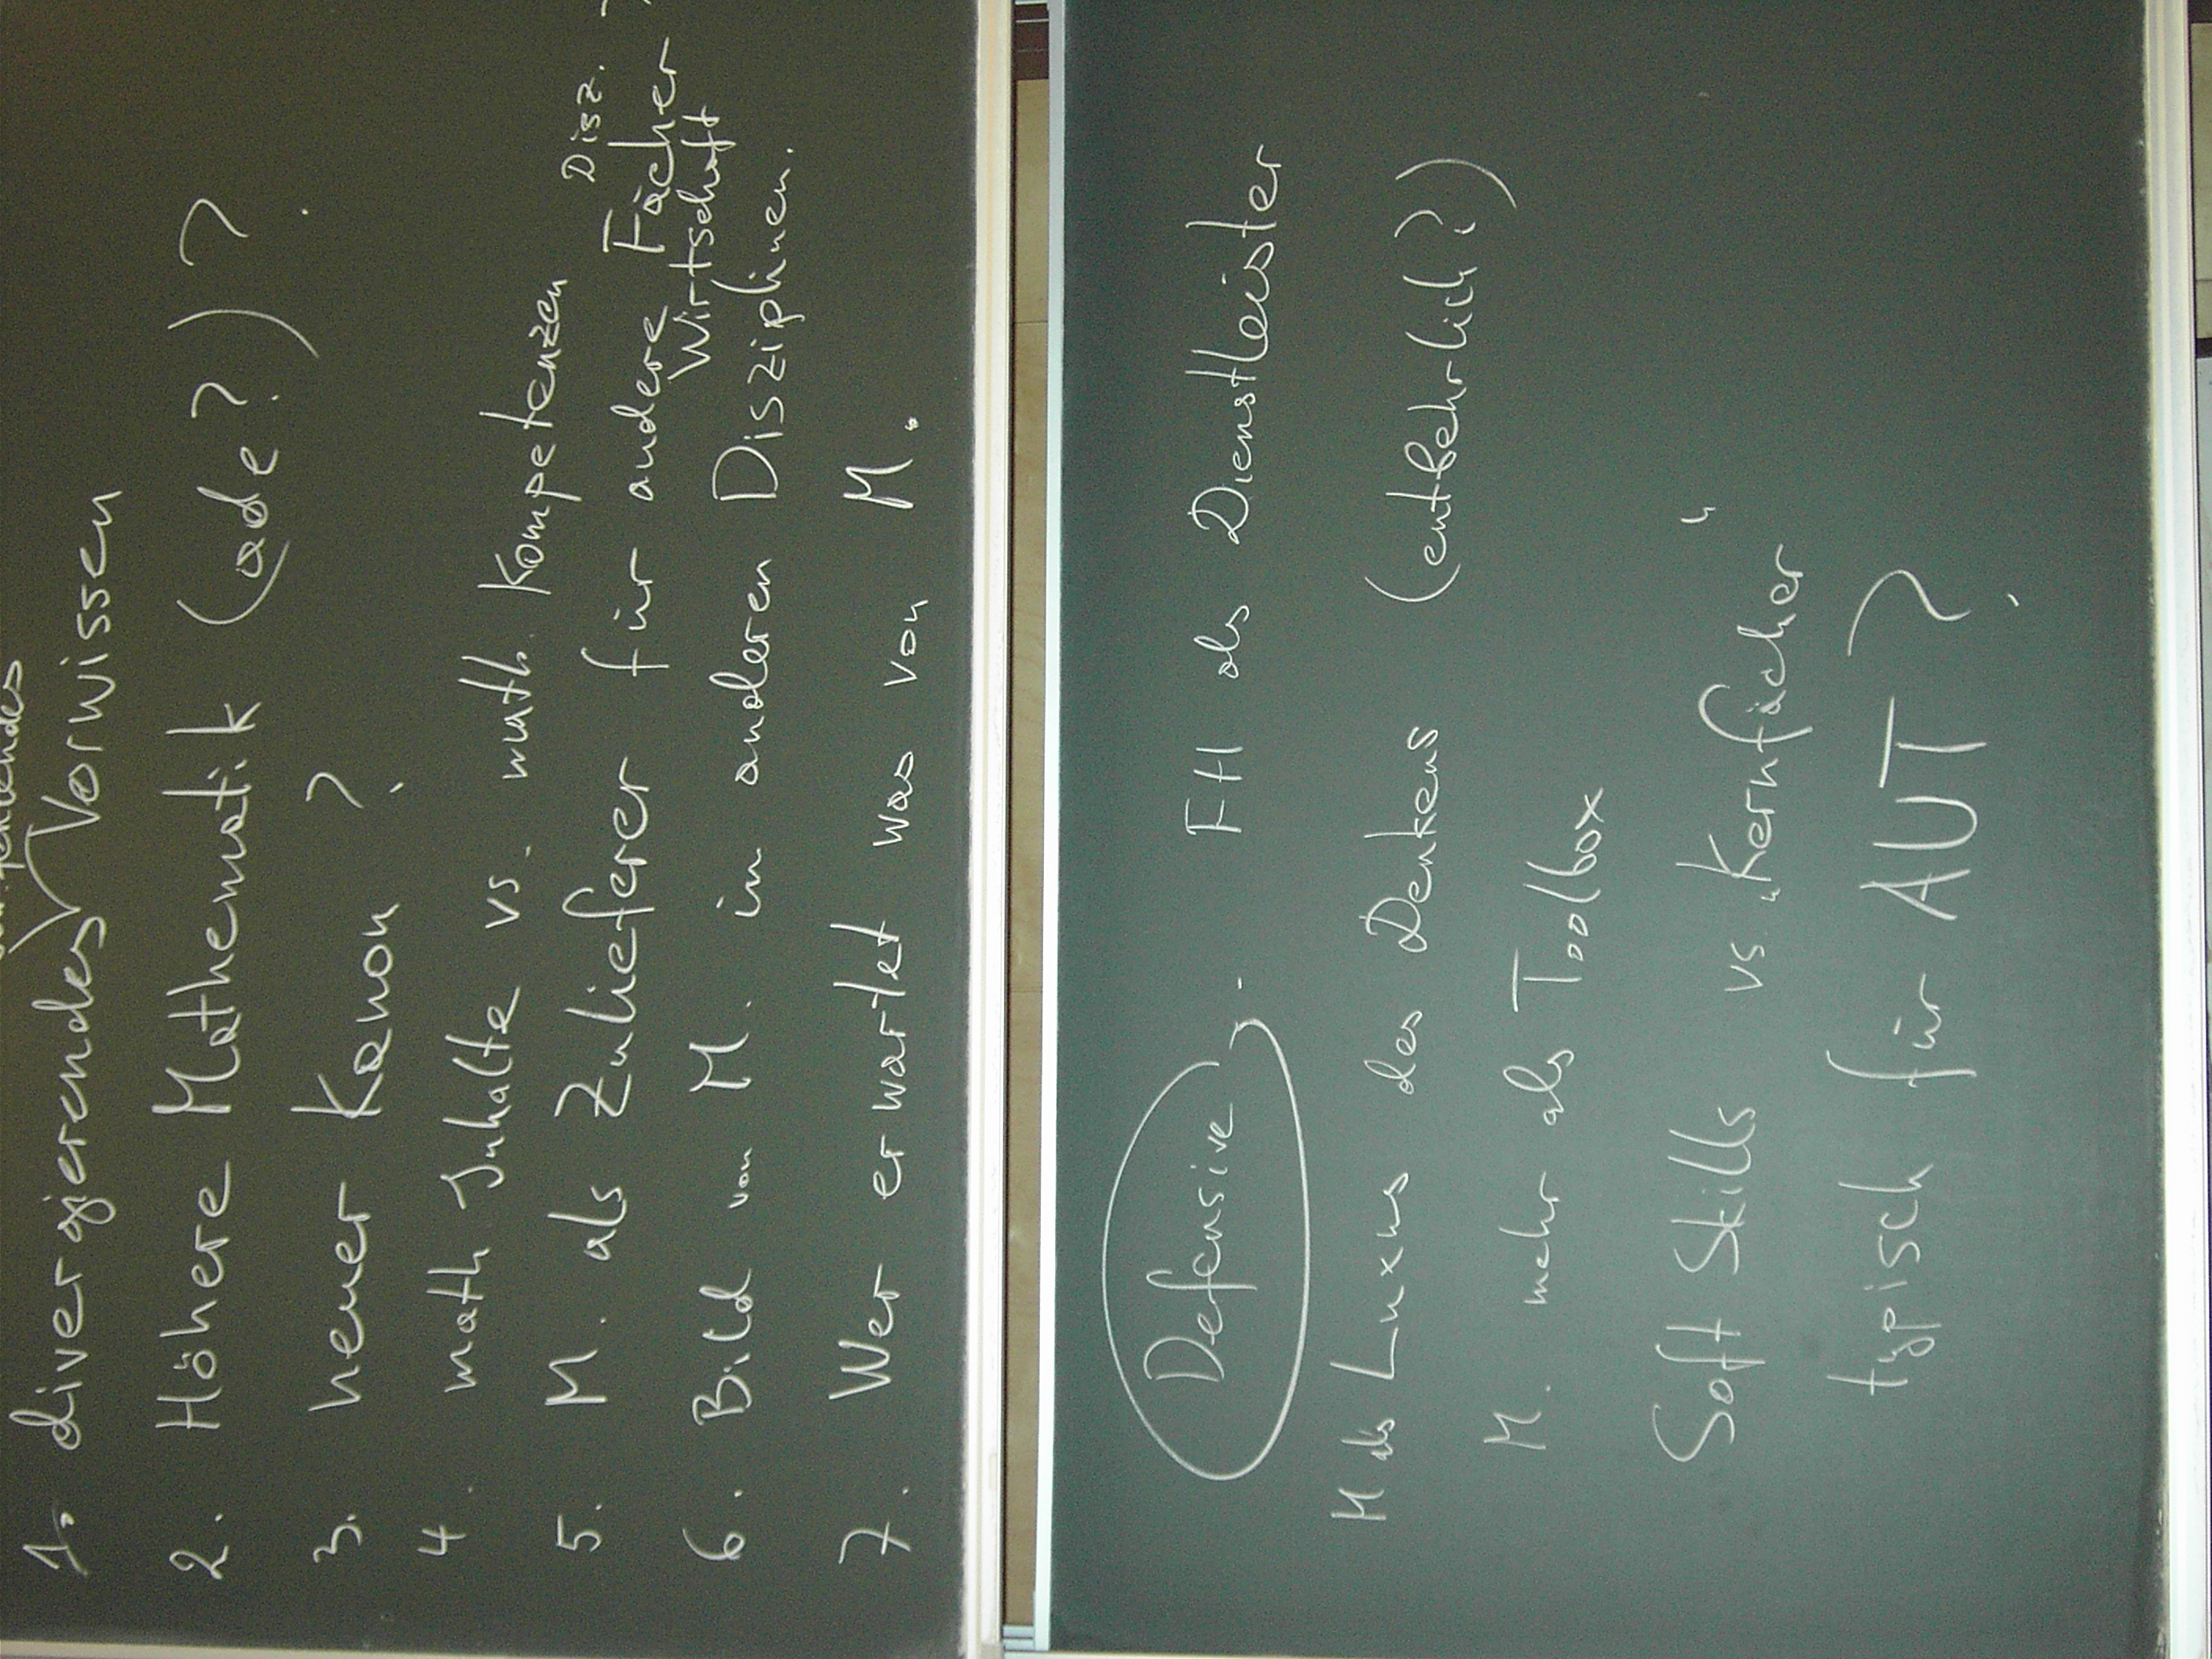 1. divergierendes Vorwissen
2. Höhere Mathematik (ade?)?
3. neuer Kanon?
4. math. Inhalte vs. math. Kompetenzen
Disz.
5. M. als Zulieferer für andere Fächer
Wirtschaft
6. Bild von M. in anderen Disziplinen.
7. Wer erwartet was von M.
Defensive - FH als Dienstleister
M als Luxus des Denkens (entbehrlich?)
M. mehr als Toolbox
Soft Skills vs. „Kernfächer“
typisch für AUT?